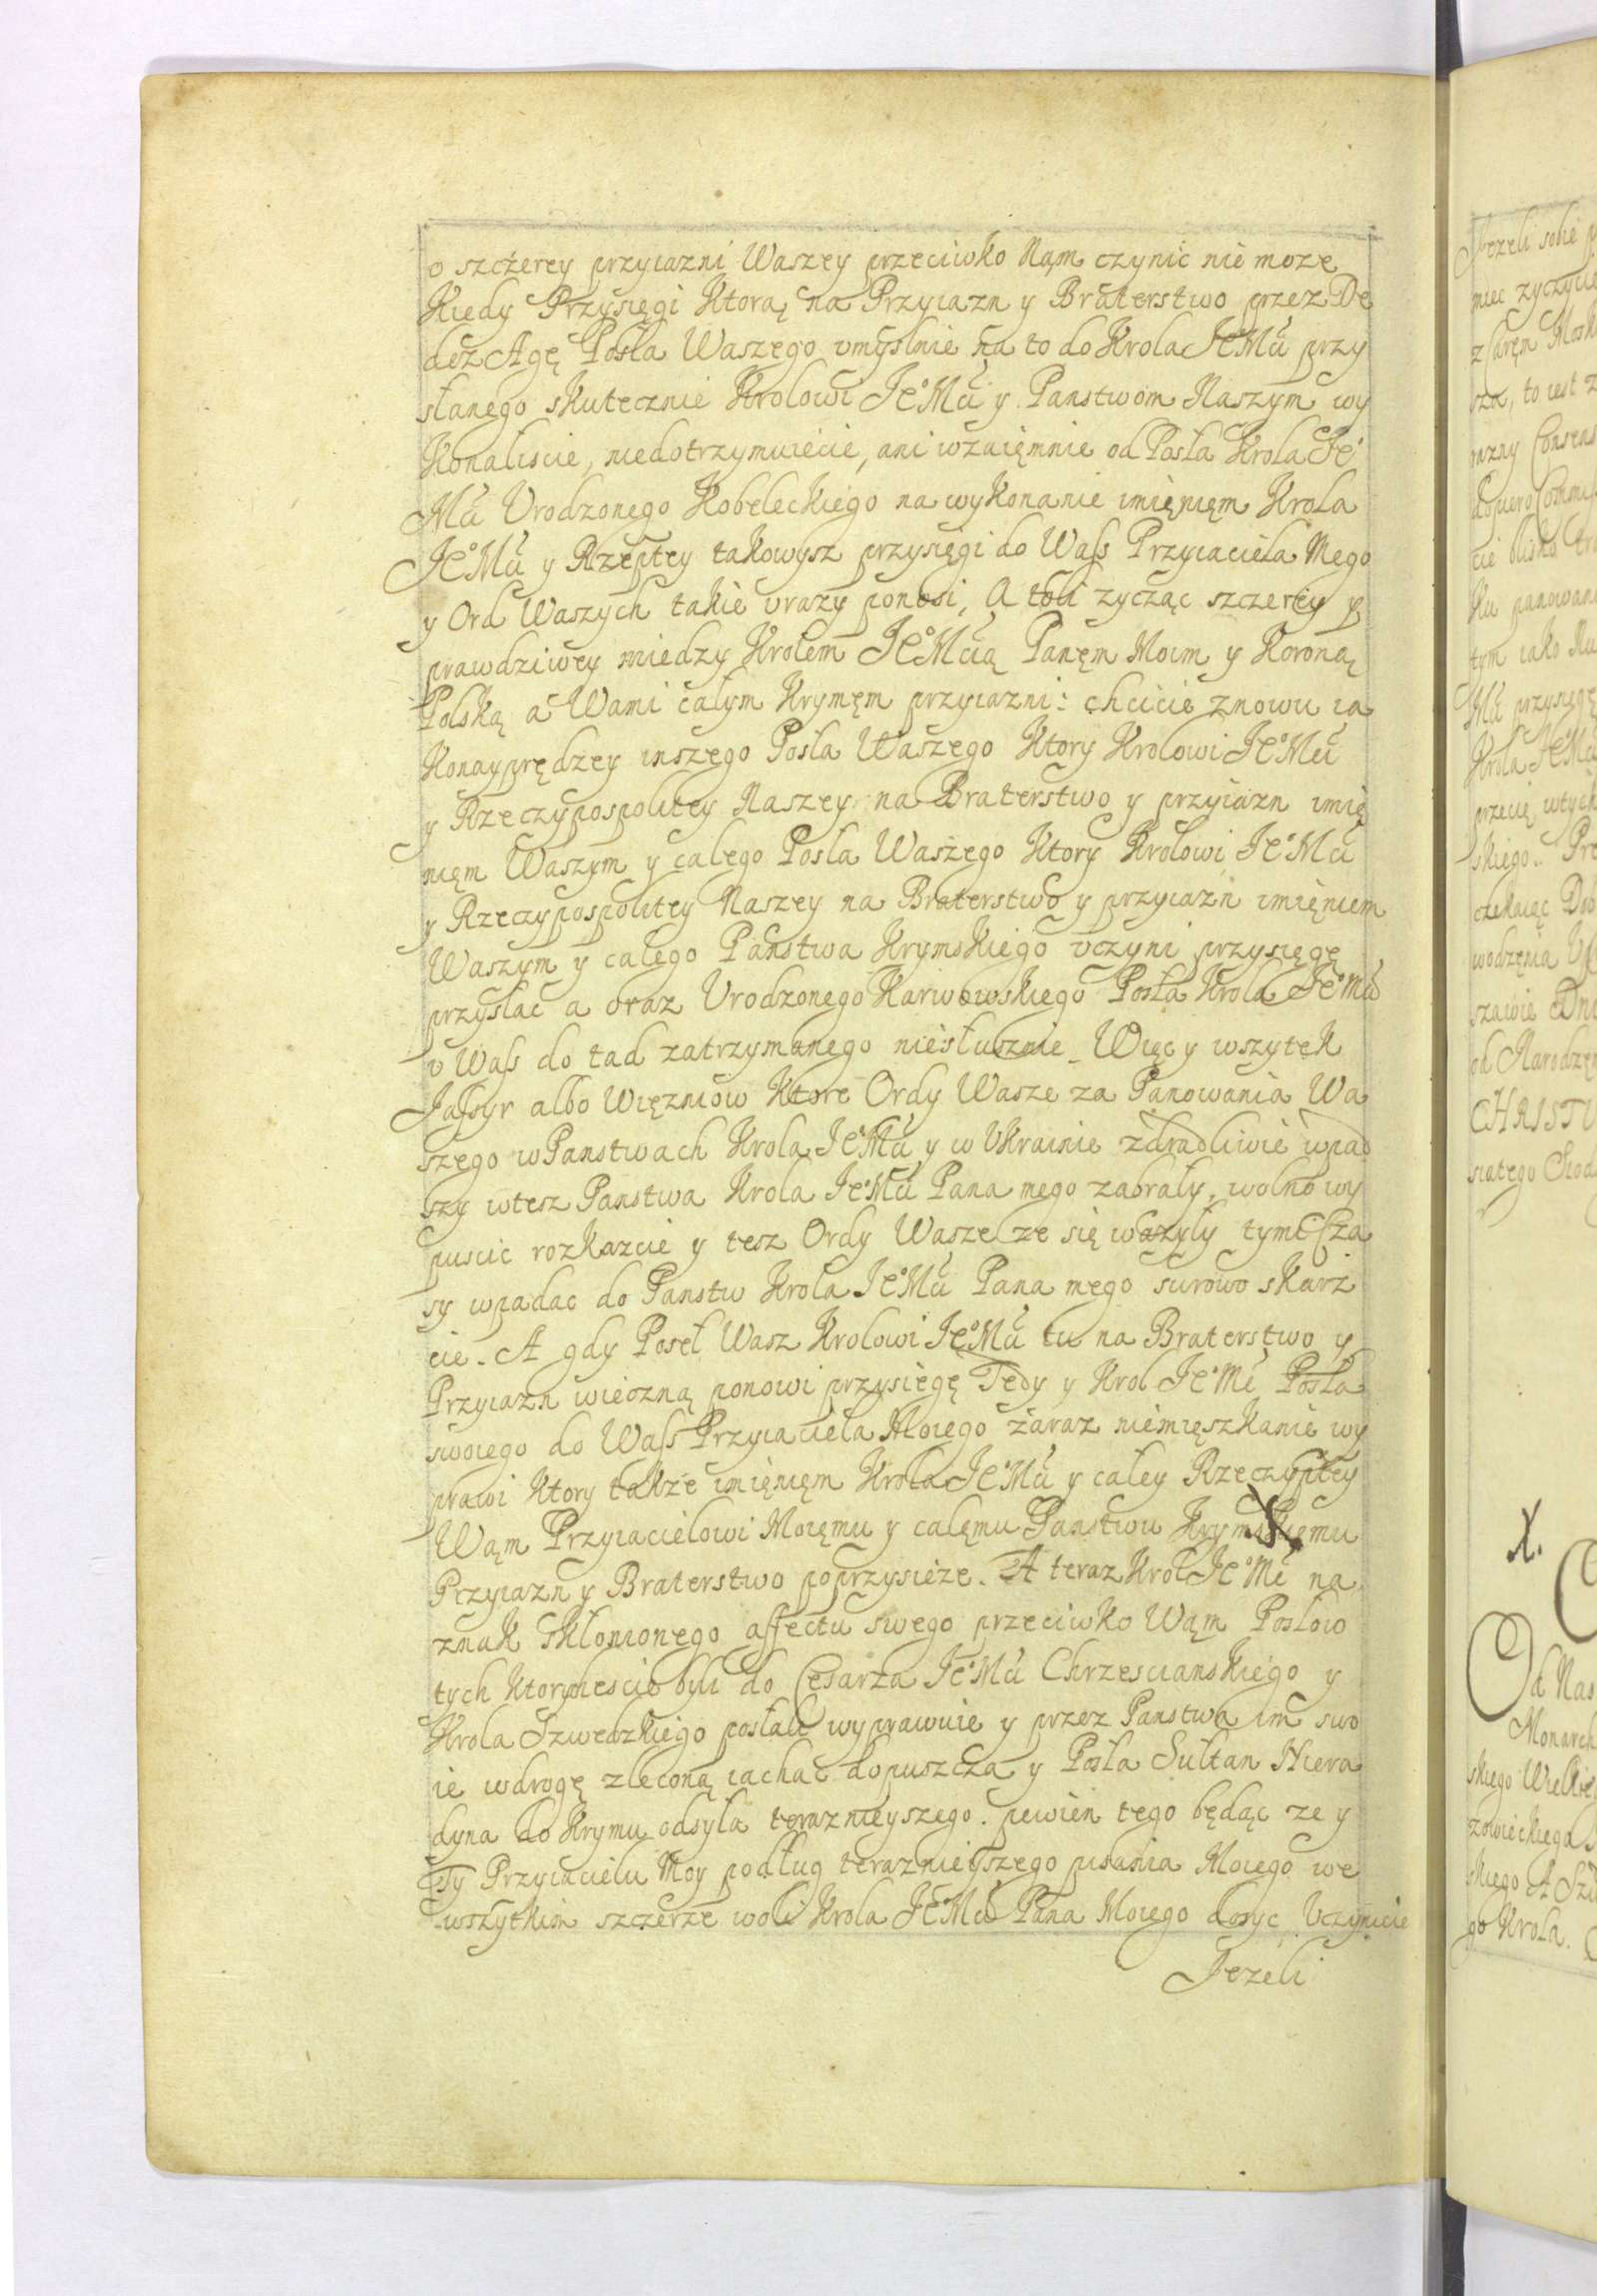 o szczerey przyiazni Waszey przeciwko Nąm czynic nie moze
Kiedy Przysięgi Ktorą na Przyiazn y Braterstwo przez De
desz Agę Posła Waszego vmyslnie na to do Krola JeºMci przy
słanego skutecznie Krolowi JeºMci y Panstwom Naszym wy
Konaliscie, niedotrzymuiecie, ani wzaięmnie od Posła Krola Jeº
Mci Vrodzonego Kobeleckiego na wykonanie imięnięm Krola
JeºMci y Rzeptey takowysz przysięgi do Wass Przyiaciela Mego
y Ord Waszych takie vrazy ponosi, A toli zycząc szczerey y
prawdziwey miedzy Krolem JeºMcią Panęm Moim y Koroną
Polską a Wami całym Krymęm przyiazni: chcicie znowu ia
Konayprędzey inszego Posła Waszego Ktory Krolowi JeºMci
y Rzeczypospolitey Naszey na Braterstwo y przyiazn imię
nięm Waszym y całego Posla Waszego Ktory Krolowi JeºMci
y Rzeczypospolitey Naszey na Braterstwo y przyiazn imięniem
Waszym y całego Panstwa Krymskiego vczyni przysięgę
przysłac a oraz Vrodzonego Karwowskiego Posła Krola JeºMci
v Wass do tad zatrzymanego niesłusznie Więc y wszytek
Jassyr albo Więzniow Ktore Ordy Wasze za Panowania Wa
szego w Panstwach Krola JeºMci y w Vkrainie zdradliwie wpad
szy wtesz Panstwa Krola JeºMci Pana mego zabrały, wolno wy
puscic rozkazcie y tesz Ordy Wasze ze się wazyly tymi Cza
sy wpadac do Panstw Krola JeºMci Pana mego surowo skarz
cie. A gdy Poseł Wasz Krolowi JeºMci tu na Braterstwo y
Przyiazn wieczną ponowi przysięgę Tedy y Krol JeºMc Posła
swoiego do Wass Przyiaciela Moiego zaraz niemięszkanie wy
prawi Ktory także imięnięm Krola JeºMci y całey Rzeczyptey
Wąm Przyiacielowi Moięmu y całęmu Panstwu Krymskiemu
Przyiazn y Braterstwo poprzysieze. A teraz Krol JeºMc na
znak skłonionego affectu swego przeciwko Wąm Posłow
tych Ktorychescie byli do Cesarza JeºMci Chrzescianskiego y
Krola Szwedzkiego posłali wyprawuie y przez Panstwa im swo
ie wdrogę zleconą iachac dopuszcza y Posła Sultan Hiera
dyna do Krymu odsyła teraznieyszego. pewien tego będąc ze y
Ty Przyiacielu Moy podług teraznieyszego pisania Moiego we
wszytkim szczerze woli Krola JeºMci Pana Moiego dosyc Vczynicie
Jezeli
X.